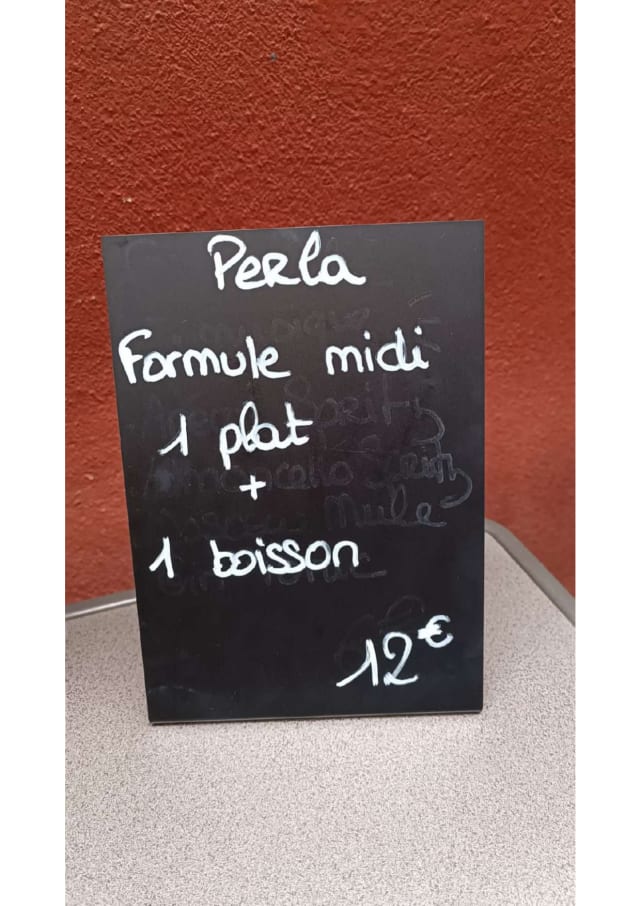 Perla
Formule midi
1 plat
+
1 boisson
12€